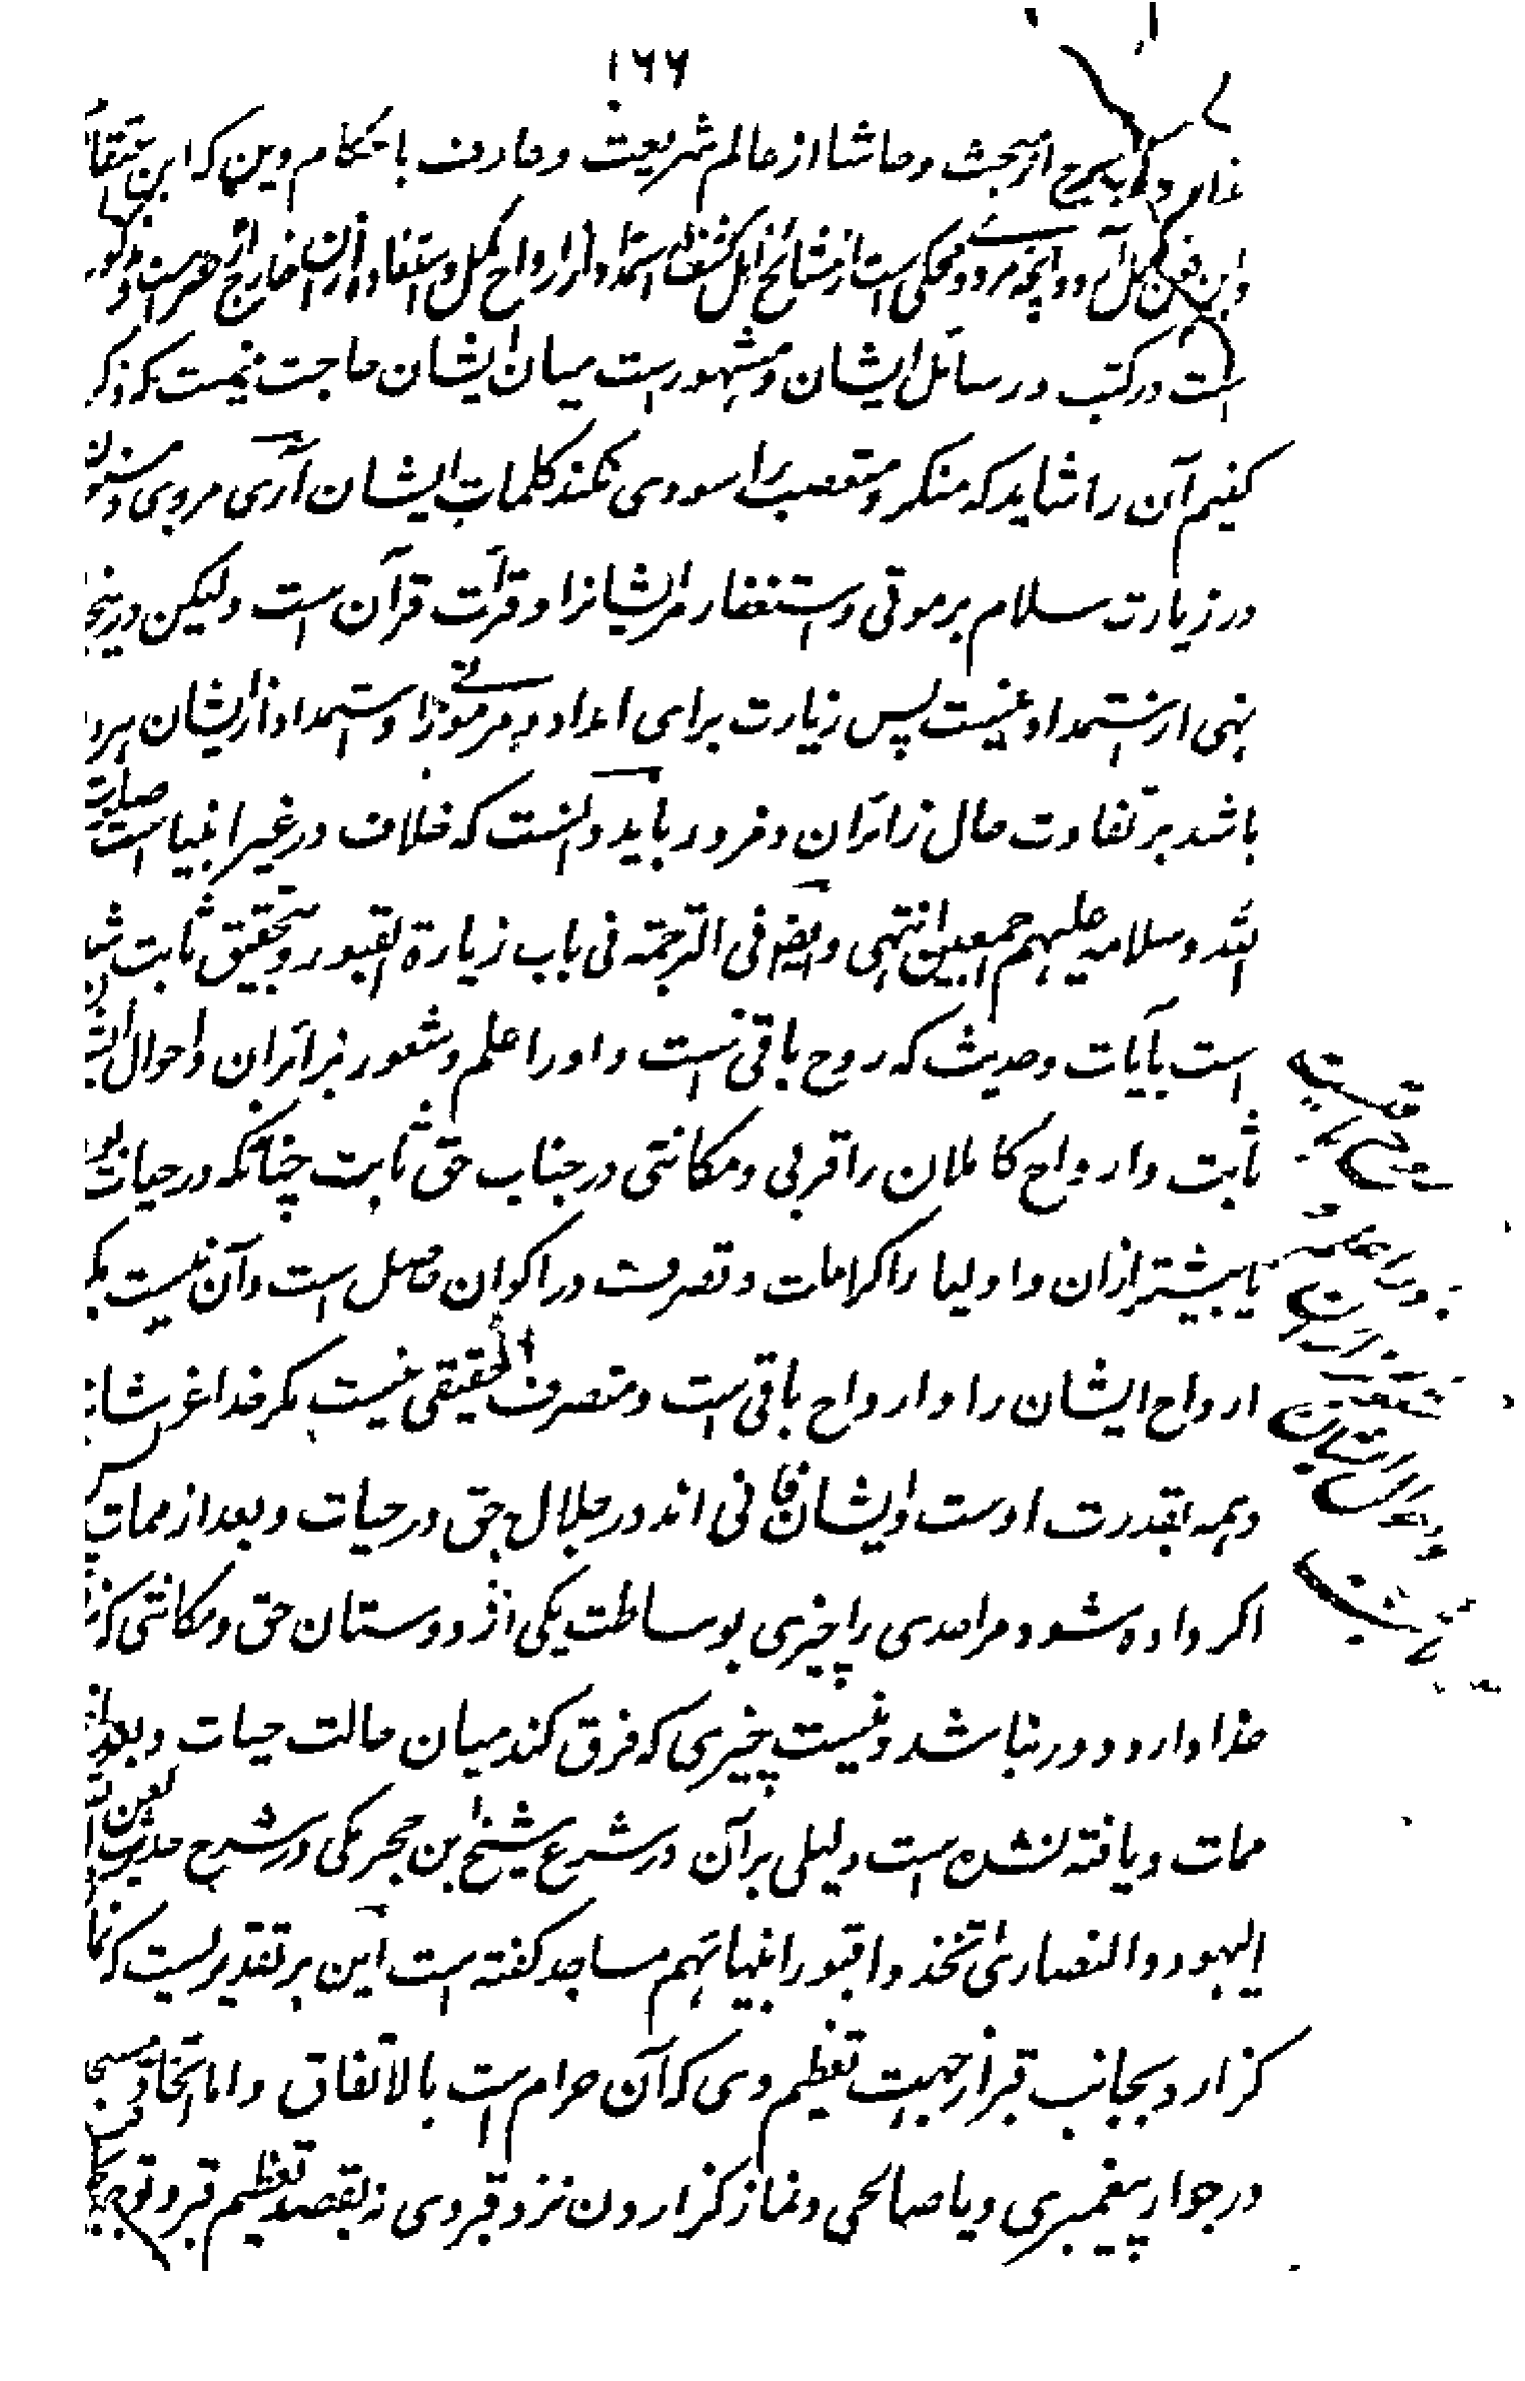 ۱۶۶
خارج از مبحث و حاشا از عالم شریعت و عارف با حکام دین که این اعتقاد
و این فعل و آنچه مروی و محکی است از مشائخ اهل کشف در استمداد از ارواح کمل و استفاده ازان خارج از حصر است و مذکور
است در کتب و رسائل ایشان و مشهور است میان ایشان حاجت نیست که ذکر
کنیم آن را شاید که منکر و متعصب را سودی نکند کلمات ایشان آری مروی و مسنون
در زیارت سلام بر موتی و استغفار مر ایشانرا و قرأت قرآن است ولیکن درینجا
نهی از استمداد نیست پس زیارت برای امداد مر موتی را و استمداد از ایشان هر دو
باشد بر تفاوت حال زائران و مزور باید دانست که خلاف در غیر انبیا است صلوات
الله و سلامه علیهم اجمعین انتهی و ایضا فی الترجمته فی باب زیارة القبور و تحقیق ثابت شده
است بآیات و حدیث که روح باقی است و او را علم و شعور بزائران و احوال ایشان
ثابت و ارواح کاملان را قربی و مکانتی در جناب حق ثابت چنانکه در حیات بود
یا بیشتر ازان و اولیا را کرامات و تصرف در اکوان حاصل است و آن نیست مگر
ارواح ایشان را و ارواح باقی است و متصرف الحقیقی نیست مگر خدا عز شانه
و همه بقدرت اوست و ایشان فانی اند در جلال حق در حیات و بعد از ممات پس
اگر داده شود مر احدی را چیزی بوساطت یکی از دوستان حق و مکانتی که نزد
خدا دارد دور نباشد و نیست چیزی که فرق کند میان حالت حیات و بعد از
ممات و یافته نشده است دلیلی بر آن در شرع شیخ ابن حجر مکی در شرح حدیث لعن الله
الیهود و النصاری اتخذوا قبور انبیائهم مساجد گفته است این بر تقدیریست که نماز
گزارد بجانب قبر از جهت تعظیم وی که آن حرام است بالاتفاق و اما اتخاذ مسجد
در جوار پیغمبری و یا صالحی و نماز گزاردن نزد قبر وی نه بقصد تعظیم قبر و توجه